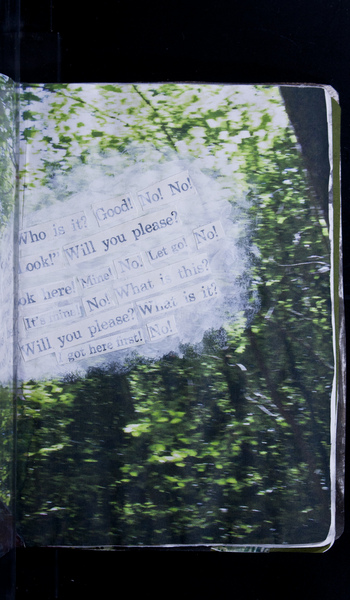 Who is it? Good! No! No!
Look!" Will you please?
ok here! Mine! No! Let go! No!
It's mine! No! What is this?
Will you please? What is it?
I got here first! No!